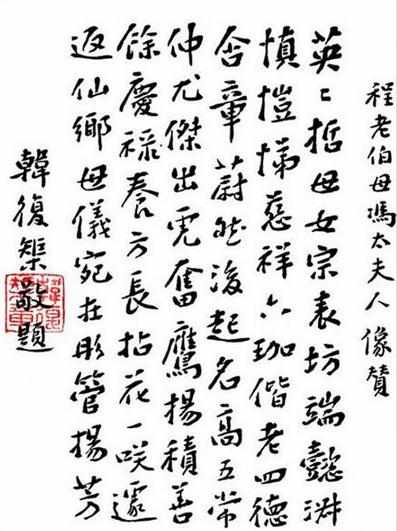 程老伯母馮太夫人像贊
英〻哲母女宗表坊端懿淑
慎愷悌慈祥六珈偕老四德
含章蔚然後起名高五常
仲尤傑出虎奮鷹揚積善
餘慶祿養方長拈花一咲遽
返仙鄉母儀宛在彤管揚芳
韓復榘敬題